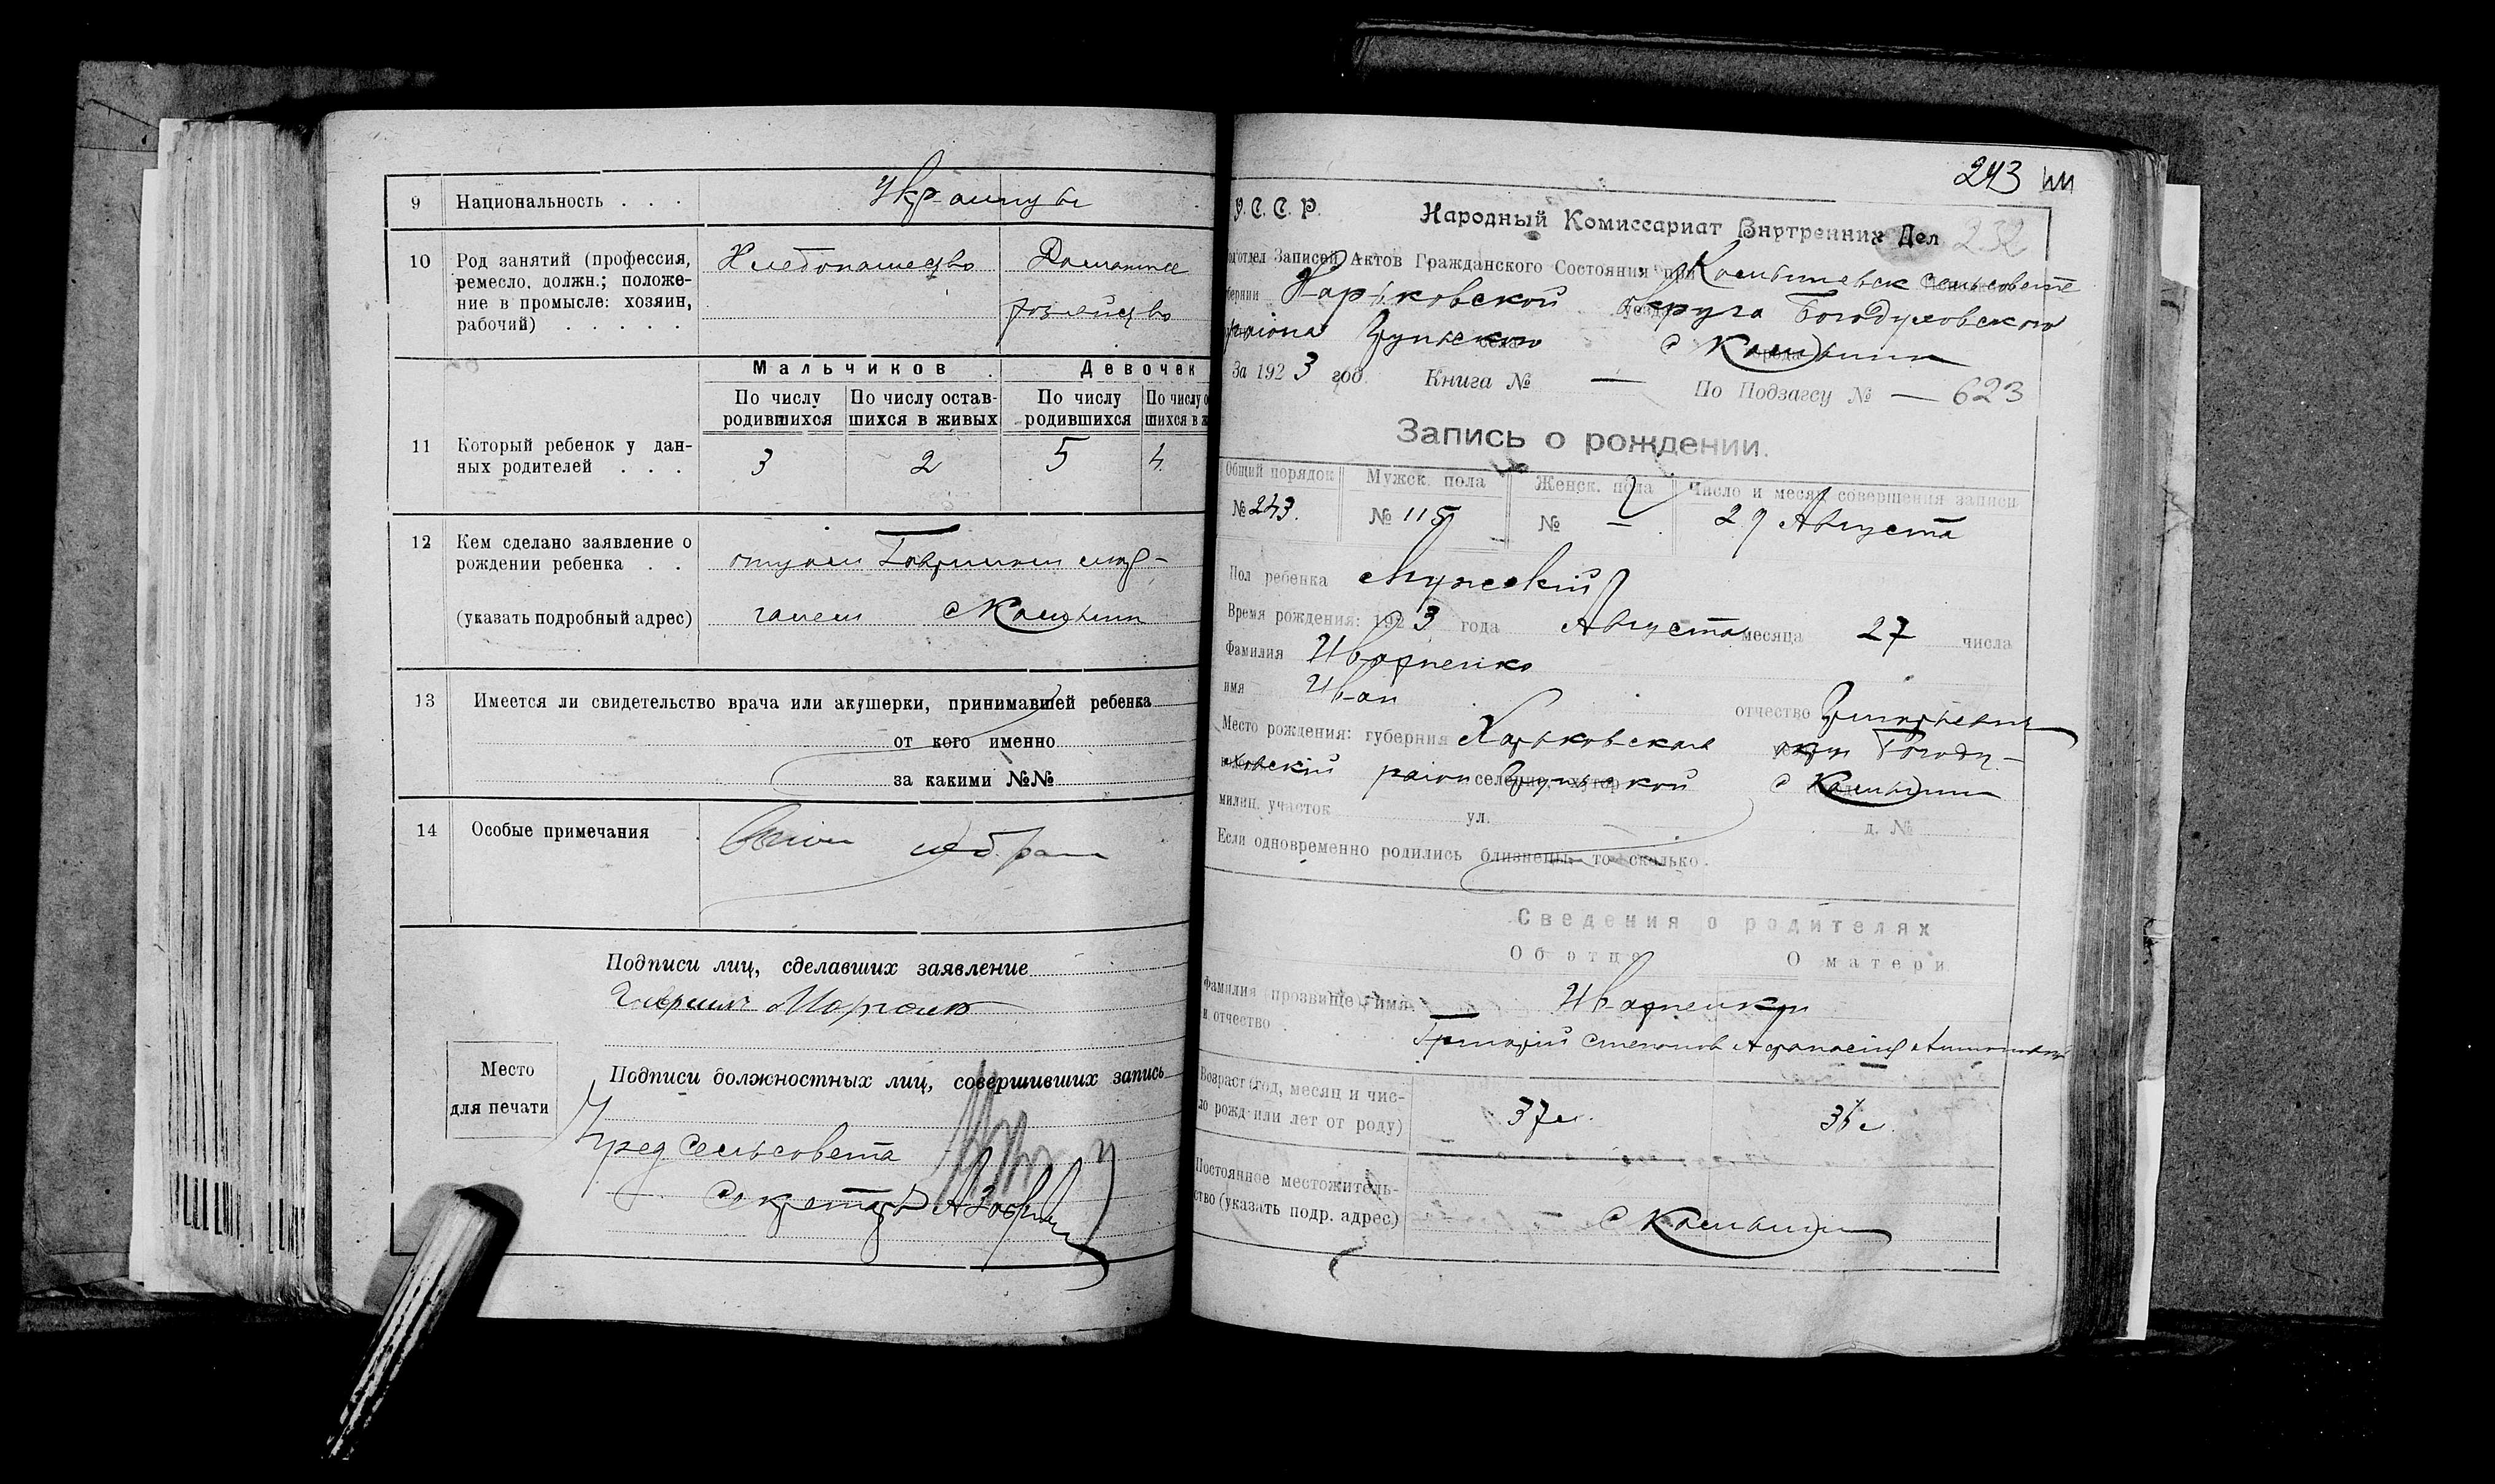 9 Национальность . . . Украинцы
10 Род занятий (профессия, Хлебопашество Домашнее
ремесло, должн.; положе-
ние в промысле: хозяин, хозяйство
рабочий) . . . . .
Мальчиков Девочек
По числу По числу остав- По числу По числу о
родившихся шихся в живых родившихся шихся в ж
11 Который ребенок у дан-
ных родителей . . . 3 2 5 4
12 Кем сделано заявление о
рождении ребенка . . отцом Гавриилом
(указать подробный адрес) с Камыши
13 Имеется ли свидетельство врача или акушерки, принимавшей ребенка
от кого именно
за какими №№
14 Особые примечания
Подписи лиц, сделавших заявление
Место
для печати
Подписи должностных лиц, совершивших запись
Пред сельсовета
Секретарь
243
У.С.С.Р. Народный Комиссариат Внутренних Дел 232
одотдел Записей Актов Гражданского Состояния при сельсовете
бернии Харьковской округа Богодуховского
района с Камыши
За 1923 год. Книга № — По Подзагсу № — 623
Запись о рождении.
Общий порядок Мужск. пола Женск. пола Число и месяц совершения записи
№ 243. № 115 № — 29 Августа
Пол ребенка Мужской
Время рождения: 1923 года Августа месяца 27 числа
Фамилия Ивахненко
имя Иван отчество Григорьевич
Место рождения: губерния Харьковская округ Богоду-
ховский район селение, хутор с Камыши
милиц. участок ул. д. №
Если одновременно родились близнецы то сколько
Сведения о родителях
Об отце О матери
Фамилия (прозвище) имя
и отчество Григорий Степанов
Возраст (год, месяц и чис-
ло рожд. или лет от роду) 37 л. 36 л.
Постоянное местожитель-
ство (указать подр. адрес) с Камыши